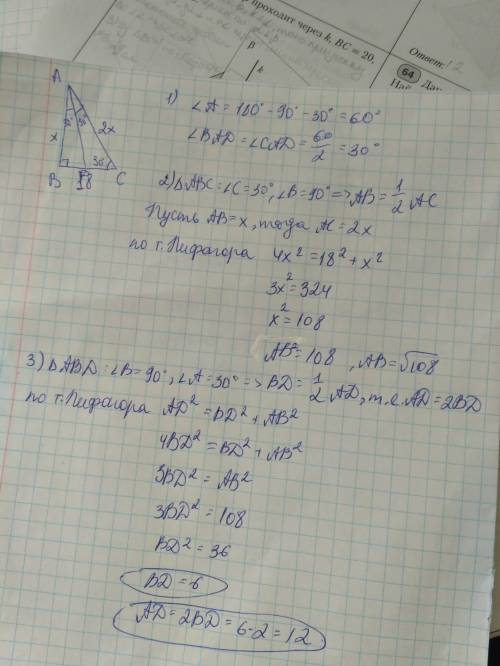 проходит через k, BC = 20,
β
k
Ответ: 12
64 Дан
Най
A
x
2x
B
D
C
30
18
1) ∠A = 180° - 90° - 30° = 60°
∠BAD = ∠CAD = 60/2 = 30°
2) △ABC: ∠C = 30°, ∠B = 90° => AB = 1/2 AC
Пусть AB = x, тогда AC = 2x
по т. Пифагора 4x² = 18² + x²
3x² = 324
x² = 108
AB² = 108, AB = √108
3) △ABD: ∠B = 90°, ∠A = 30° => BD = 1/2 AD, т.е. AD = 2BD
по т. Пифагора AD² = BD² + AB²
4BD² = BD² + AB²
3BD² = AB²
3BD² = 108
BD² = 36
BD = 6
AD = 2BD = 6·2 = 12